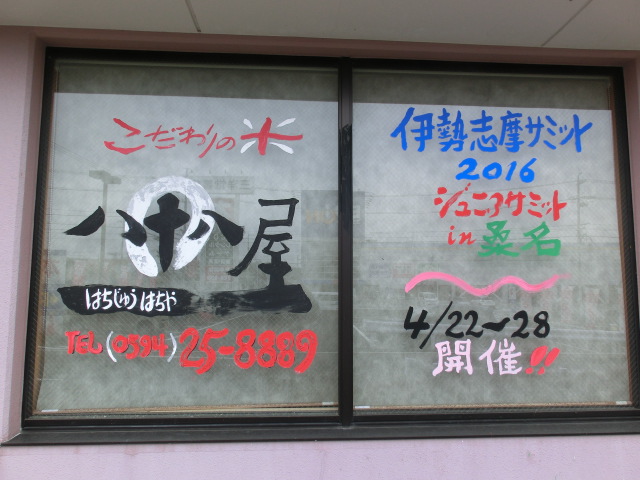 こだわりの米
八十八屋
はちじゅうはちや
TEL(0594)25-8889
伊勢志摩サミット
2016
ジュニアサミット
in 桑名
4/22〜28
開催!!